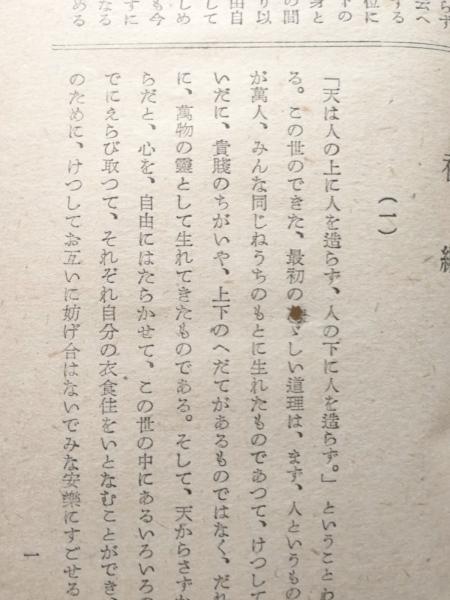 らず
云へ
する
位に
下の
身と
の間
り以
由自
して
しめ
も今
ずに
なる
める
(一)
「天は人の上に人を造らず、人の下に人を造らず。」ということわ
る。この世のできた、最初の ゞしい道理は、まず、人というもの
が萬人、みんな同じねうちのもとに生れたものであつて、けつして
いだに、貴賤のちがいや、上下のへだてがあるものではなく、だれ
に、萬物の靈として生れてきたものである。そして、天からさずか
らだと、心を、自由にはたらかせて、この世の中にあるいろいろの
でにえらび取つて、それぞれ自分の衣食住をいとなむことができ、
のために、けつしてお互いに妨げ合はないでみな安樂にすごせる
一